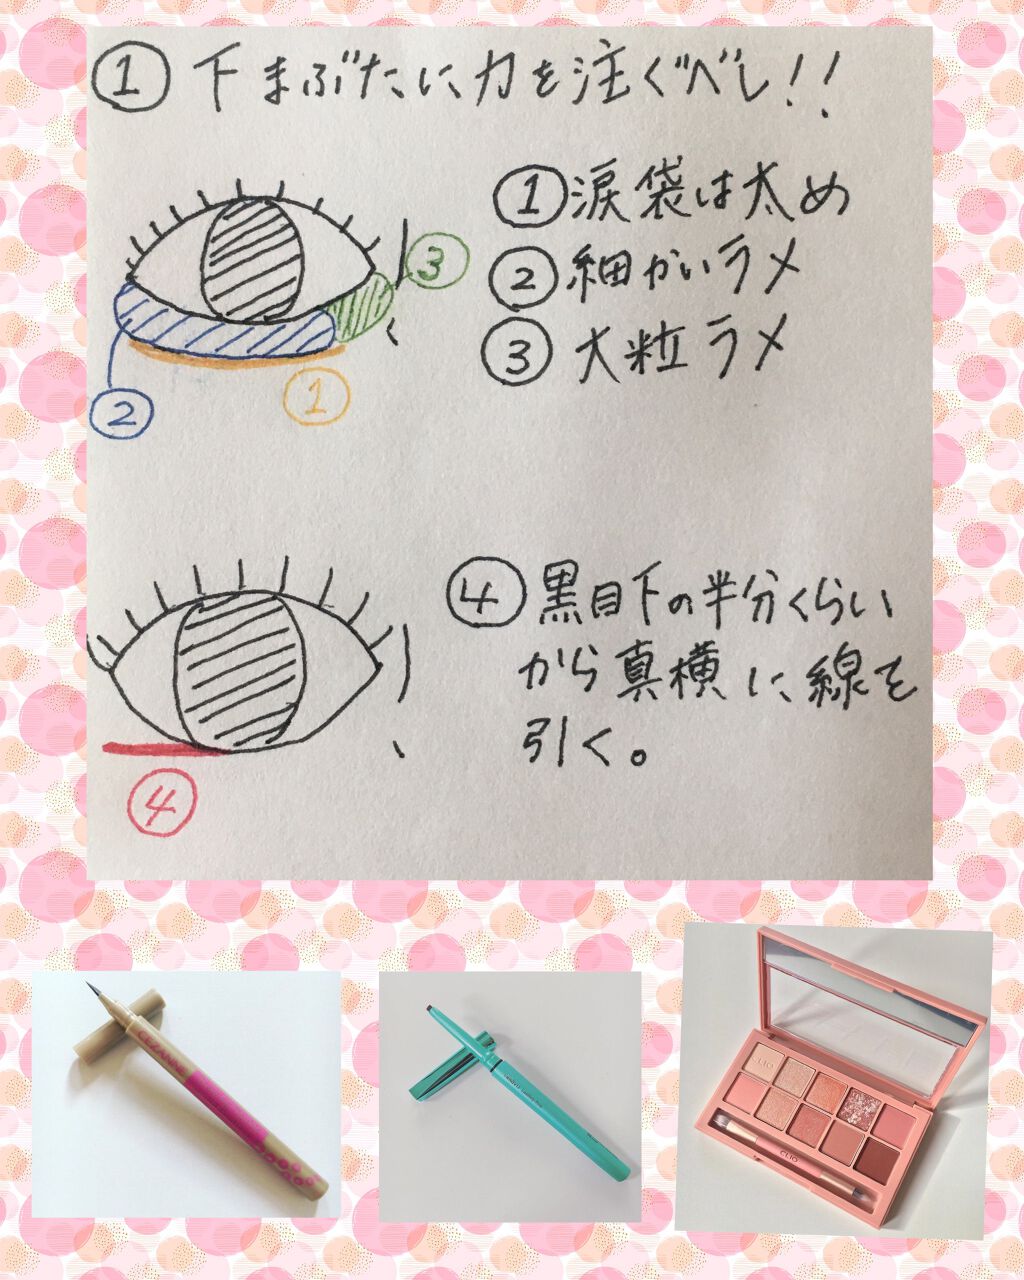 ① 下まぶたに力を注ぐべし!!
①涙袋は太め
②細かいラメ
③大粒ラメ
③
②
①
④黒目下の半分くらい
から真横に線を
引く。
④
CEZANNE
CLIO
CLIO